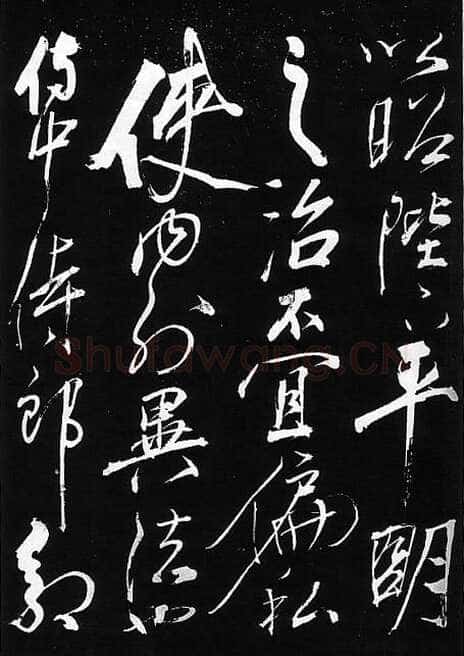 以昭陛下平明
之治不宜偏私
使内外異法也
侍中侍郎郭
Shufawang.CN